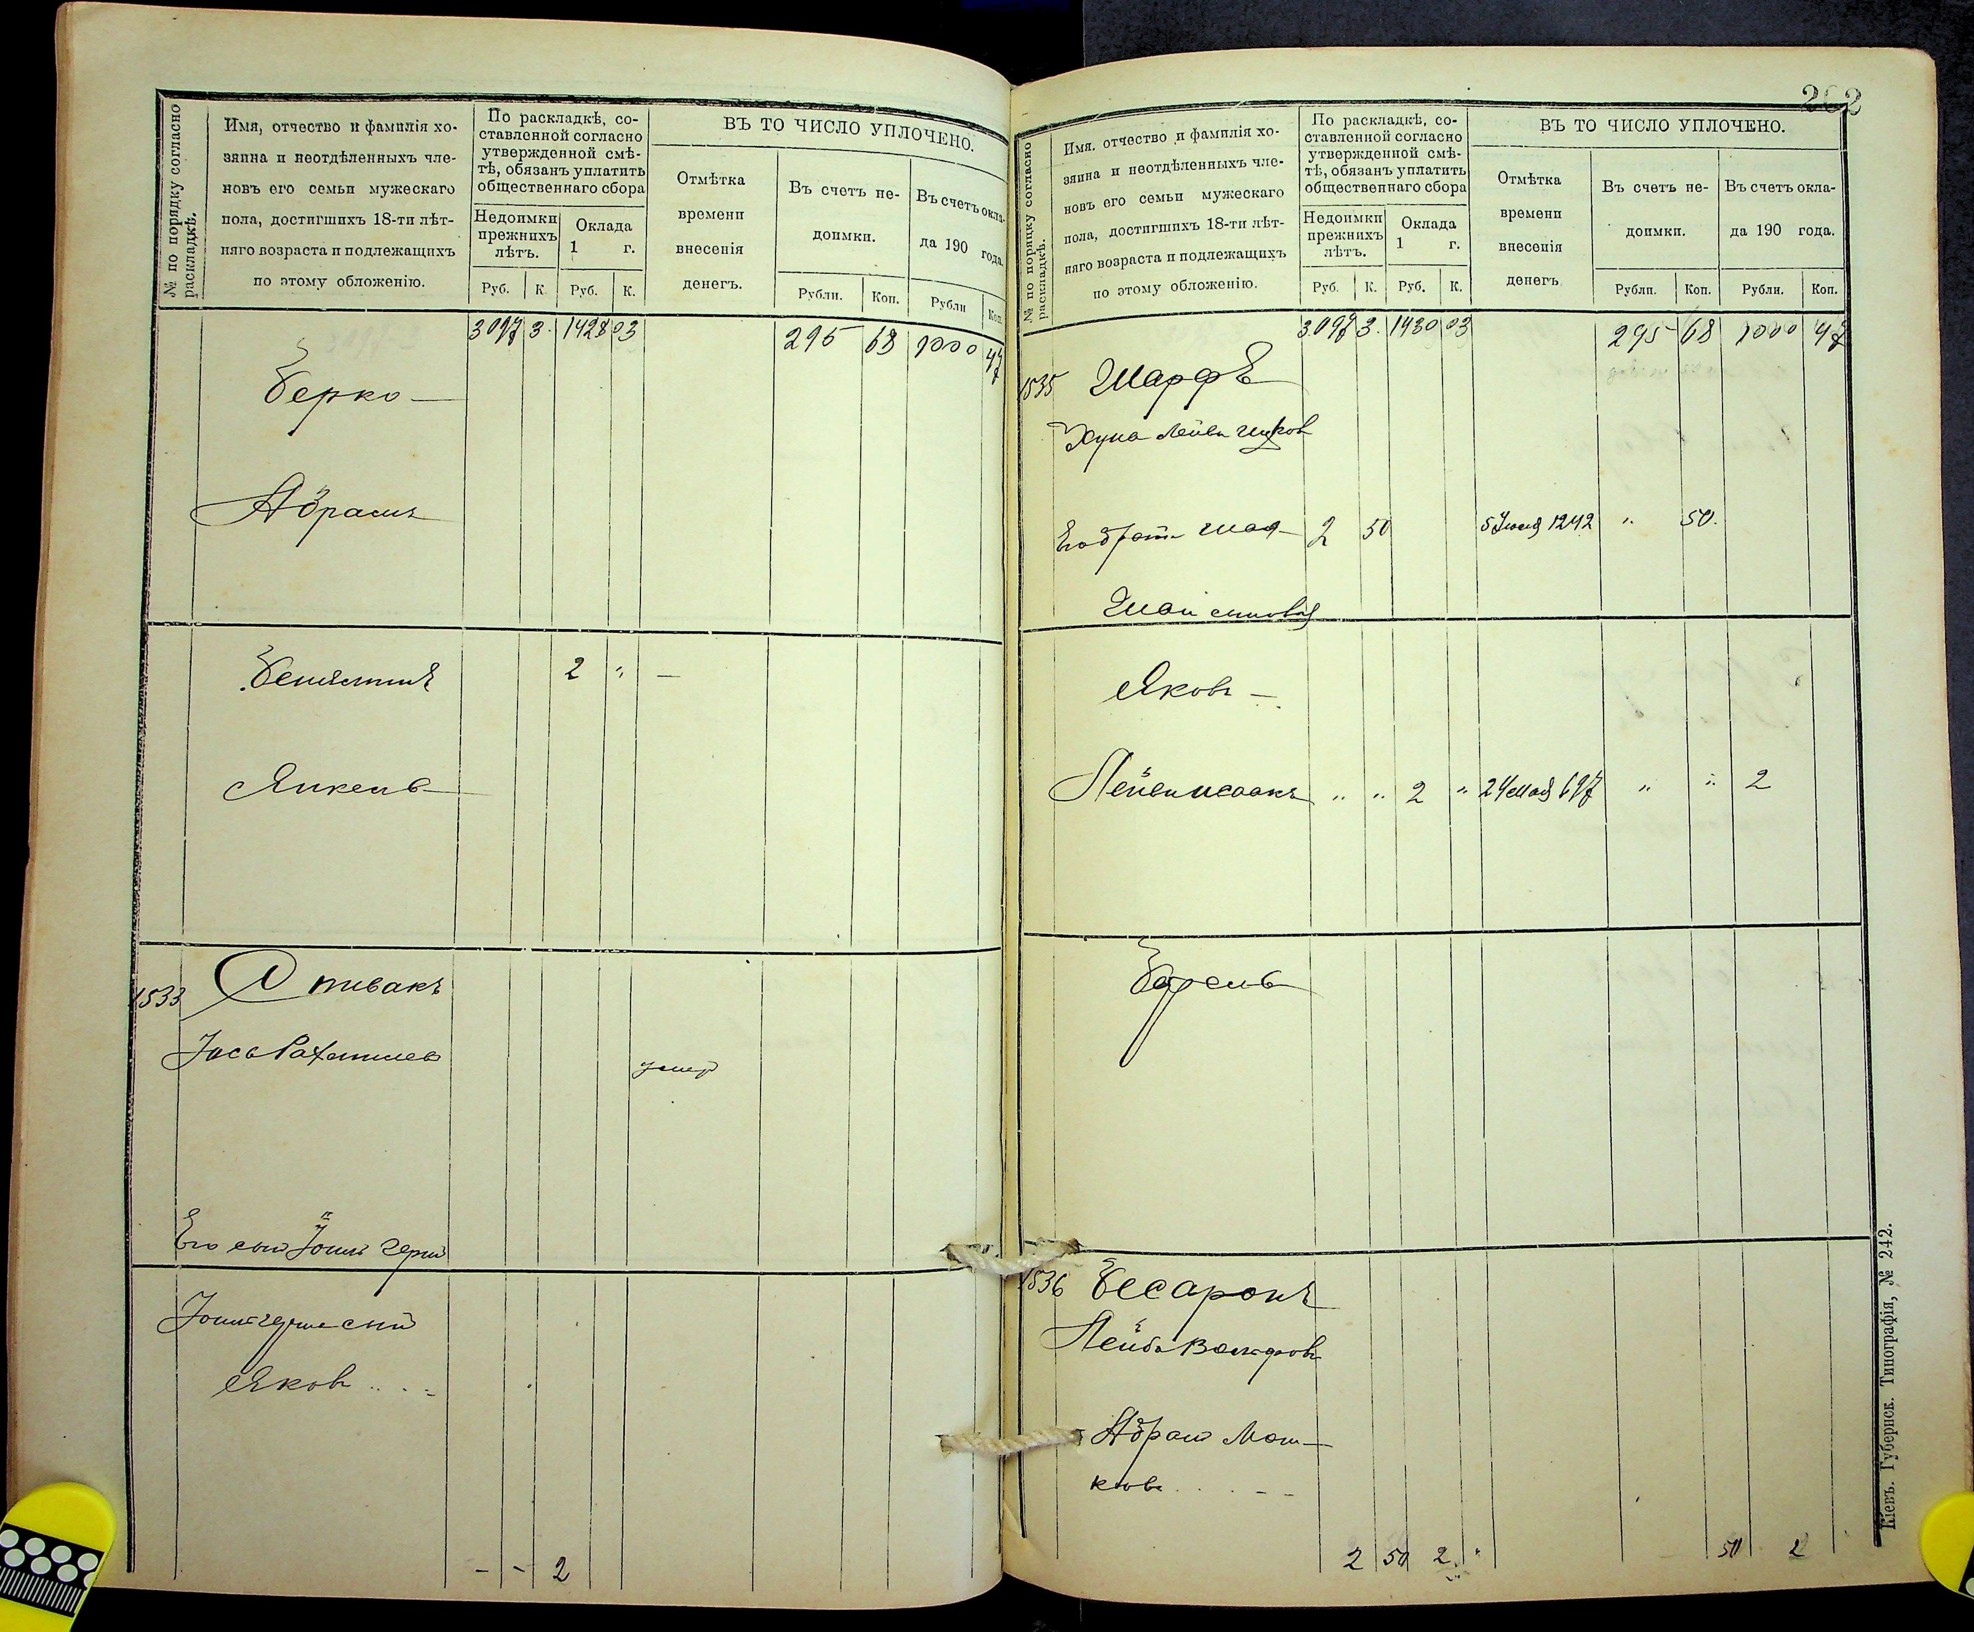 № по порядку согласно раскладкѣ.
Имя, отчество и фамилія хо-
зяина и неотдѣленныхъ чле-
новъ его семьи мужескаго
пола, достигшихъ 18-ти лѣт-
няго возраста и подлежащихъ
по этому обложенію.
По раскладкѣ, со-
ставленной согласно
утвержденной смѣ-
тѣ, обязанъ уплатить
общественнаго сбора
Недоимки прежнихъ лѣтъ.
Оклада 1 г.
Руб. К. Руб. К.
ВЪ ТО ЧИСЛО УПЛОЧЕНО.
Отмѣтка времени внесенія денегъ.
Въ счетъ не-доимки.
Въ счетъ окла-да 190 года.
Рубли. Коп. Рубли Коп.
3097 3. 1428 03 295 68 1000 47
Берко
Абрамъ
Беньяминъ 2 " —
Янкель
1533 Спивакъ
Іось Рахмилев
умер
Его сын Іоиль Герш
Іоиль Герша сын
Яков
- - 2
262
№ по порядку согласно раскладкѣ.
Имя, отчество и фамилія хо-
зяина и неотдѣленныхъ чле-
новъ его семьи мужескаго
пола, достигшихъ 18-ти лѣт-
няго возраста и подлежащихъ
по этому обложенію.
По раскладкѣ, со-
ставленной согласно
утвержденной смѣ-
тѣ, обязанъ уплатить
общественнаго сбора
Недоимки прежнихъ лѣтъ.
Оклада 1 г.
Руб. К. Руб. К.
ВЪ ТО ЧИСЛО УПЛОЧЕНО.
Отмѣтка времени внесенія денегъ
Въ счетъ не-доимки.
Въ счетъ окла-да 190 года.
Рубли. Коп. Рубли. Коп.
3097 3. 1430 03 295 68 1000 47
1535 Шарфъ
Лейви Ицков
Его братъ Шая 2 50 5 Іюня 1242 " 50.
Шаи сыновья
Яковъ
Лейви Исаакъ " " 2 " 24 мая 697 " " 2
1536 Бесаронъ
Лейба
Абрам Мош-
ковъ
2 50 2 " 50 2
Кіевъ. Губернск. Типографія, № 242.